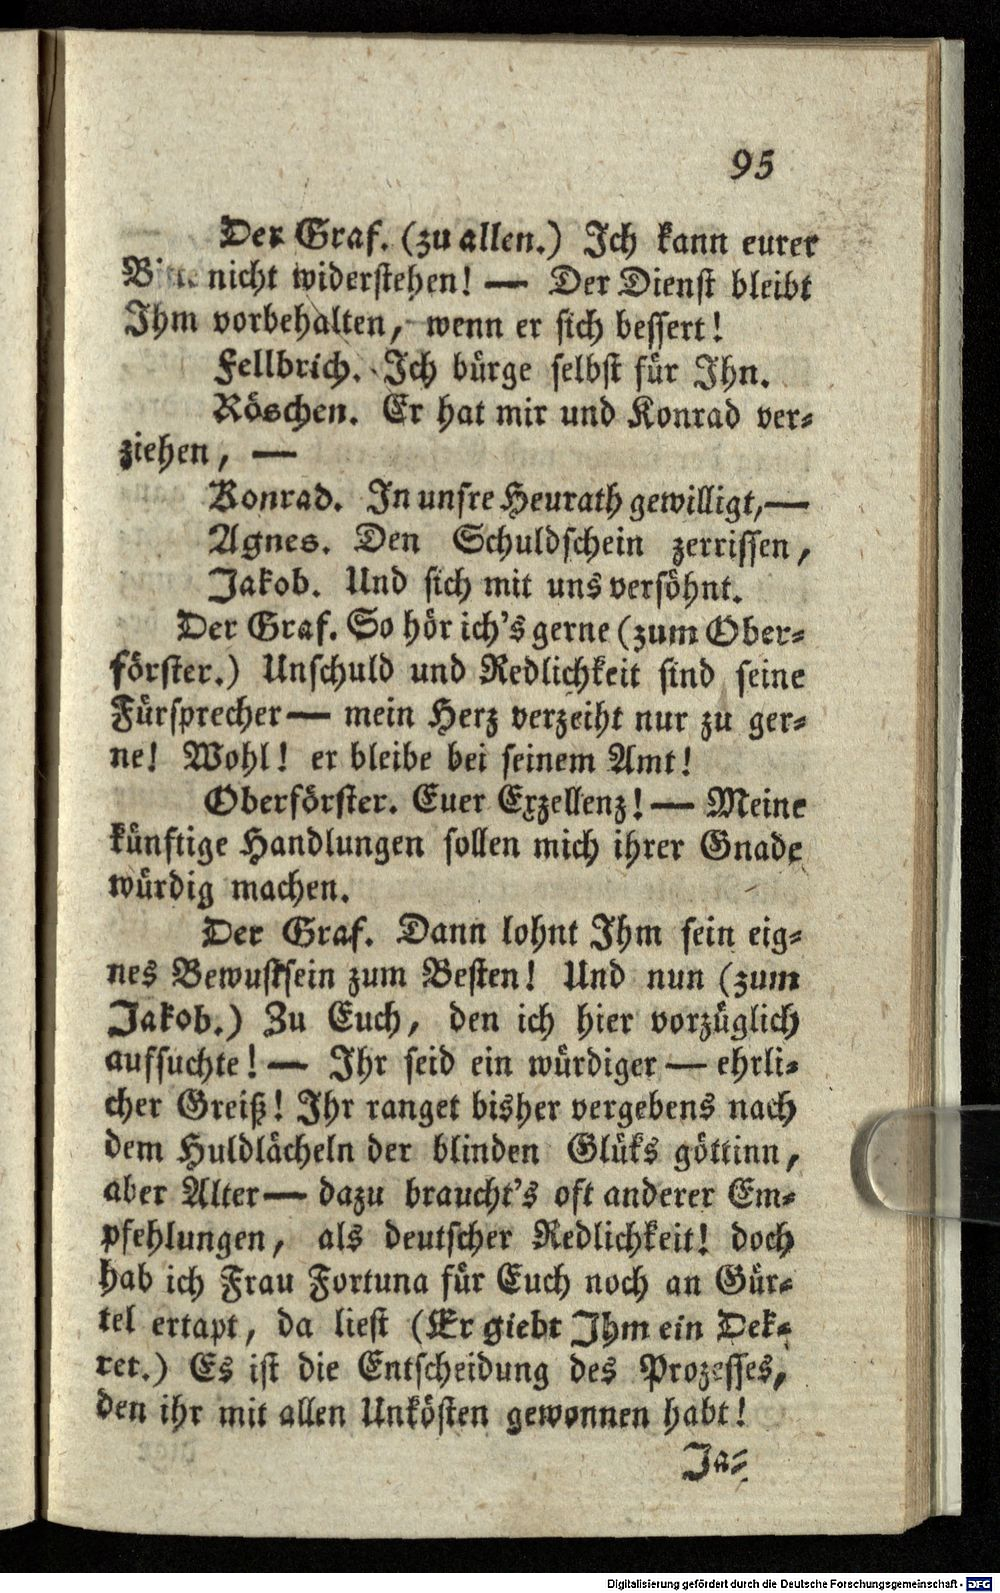 95
Der Graf. (zu allen.) Ich kann eurer
Bitte nicht widerstehen! — Der Dienst bleibt
Ihm vorbehalten, wenn er sich bessert!
Fellbrich. Ich bürge selbst für Ihn.
Röschen. Er hat mir und Konrad ver-
ziehen, —
Konrad. In unsre Heurath gewilligt,—
Agnes. Den Schuldschein zerrissen,
Jakob. Und sich mit uns versöhnt.
Der Graf. So hör ich's gerne (zum Ober-
förster.) Unschuld und Redlichkeit sind seine
Fürsprecher — mein Herz verzeiht nur zu ger-
ne! Wohl! er bleibe bei seinem Amt!
Oberförster. Euer Exzellenz! — Meine
künftige Handlungen sollen mich ihrer Gnade
würdig machen.
Der Graf. Dann lohnt Ihm sein eig-
nes Bewustsein zum Besten! Und nun (zum
Jakob.) Zu Euch, den ich hier vorzüglich
aufsuchte! — Ihr seid ein würdiger — ehrli-
cher Greiß! Ihr ranget bisher vergebens nach
dem Huldlächeln der blinden Glüks göttinn,
aber Alter — dazu braucht's oft anderer Em-
pfehlungen, als deutscher Redlichkeit! doch
hab ich Frau Fortuna für Euch noch an Gür-
tel ertapt, da liest (Er giebt Ihm ein Dek-
ret.) Es ist die Entscheidung des Prozesses,
den ihr mit allen Unkösten gewonnen habt!
Ja-
Digitalisierung gefördert durch die Deutsche Forschungsgemeinschaft - DFG